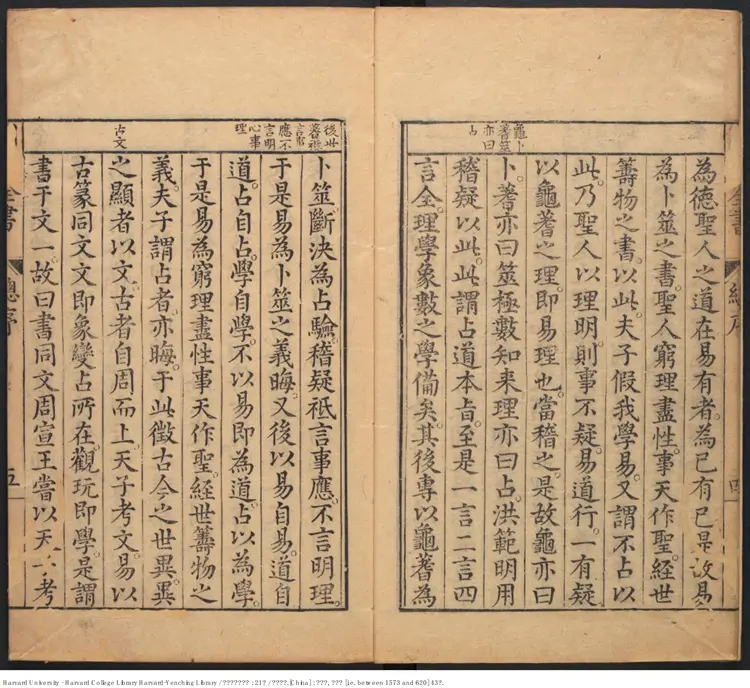 全書
總序
四
龜卜
蓍筮
亦曰
占
為德聖人之道在易有者。為已有已是故易
為卜筮之書。聖人窮理盡性。事天作聖。經世
籌物之書。以此。夫子假我學易。又謂不占以
此。乃聖人以理明。則事不疑。易道行。一有疑
以龜蓍之理。即易理也。當稽之。是故龜亦曰
卜。蓍亦曰筮。極數知来理亦曰占。洪範明用
稽疑以此。此謂占道本旨。至是一言二言四
言全。理學象數之學備矣。其後專以龜蓍為
後世
蓍祗
應不
言明
心事
理
古文
卜筮斷決為占驗。稽疑祗言事應。不言明理。
于是易為卜筮之義晦。又後以易自易。道自
道。占自占。學自學。不以易即為道占。以為學。
于是易為窮理盡性事天作聖。經世籌物之
義。夫子謂占者。亦晦。于此徵古今之世異異
之顯者以文。古者自周而上。天子考文。易以
古篆同文。文即象變占所在。觀玩即學。是謂
書于文一。故曰書同文。周宣王嘗以天下考
全書
總序
五